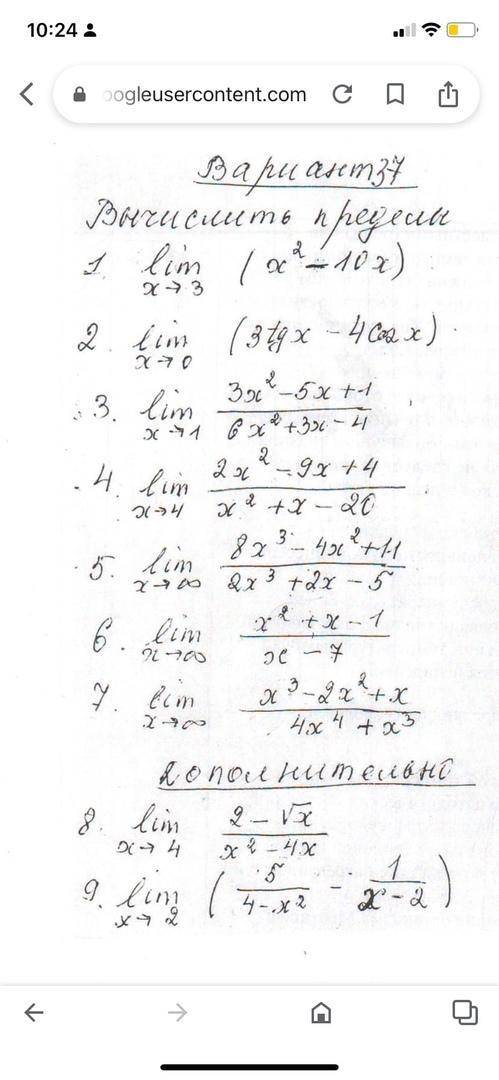 10:24
oogleusercontent.com
Вариант 37
Вычислить пределы
1. lim x→3 (x² - 10x)
2. lim x→0 (3tgx - 4cosx).
3. lim x→1 (3x² - 5x + 1)/(6x² + 3x - 4)
4. lim x→4 (2x² - 9x + 4)/(x² + x - 20)
5. lim x→∞ (8x³ - 4x² + 11)/(2x³ + 2x - 5)
6. lim x→∞ (x² + x - 1)/(x - 7)
7. lim x→∞ (x³ - 2x² + x)/(4x⁴ + x³)
Дополнительно
8. lim x→4 (2 - √x)/(x² - 4x)
9. lim x→2 (5/(4 - x²) - 1/(x - 2))